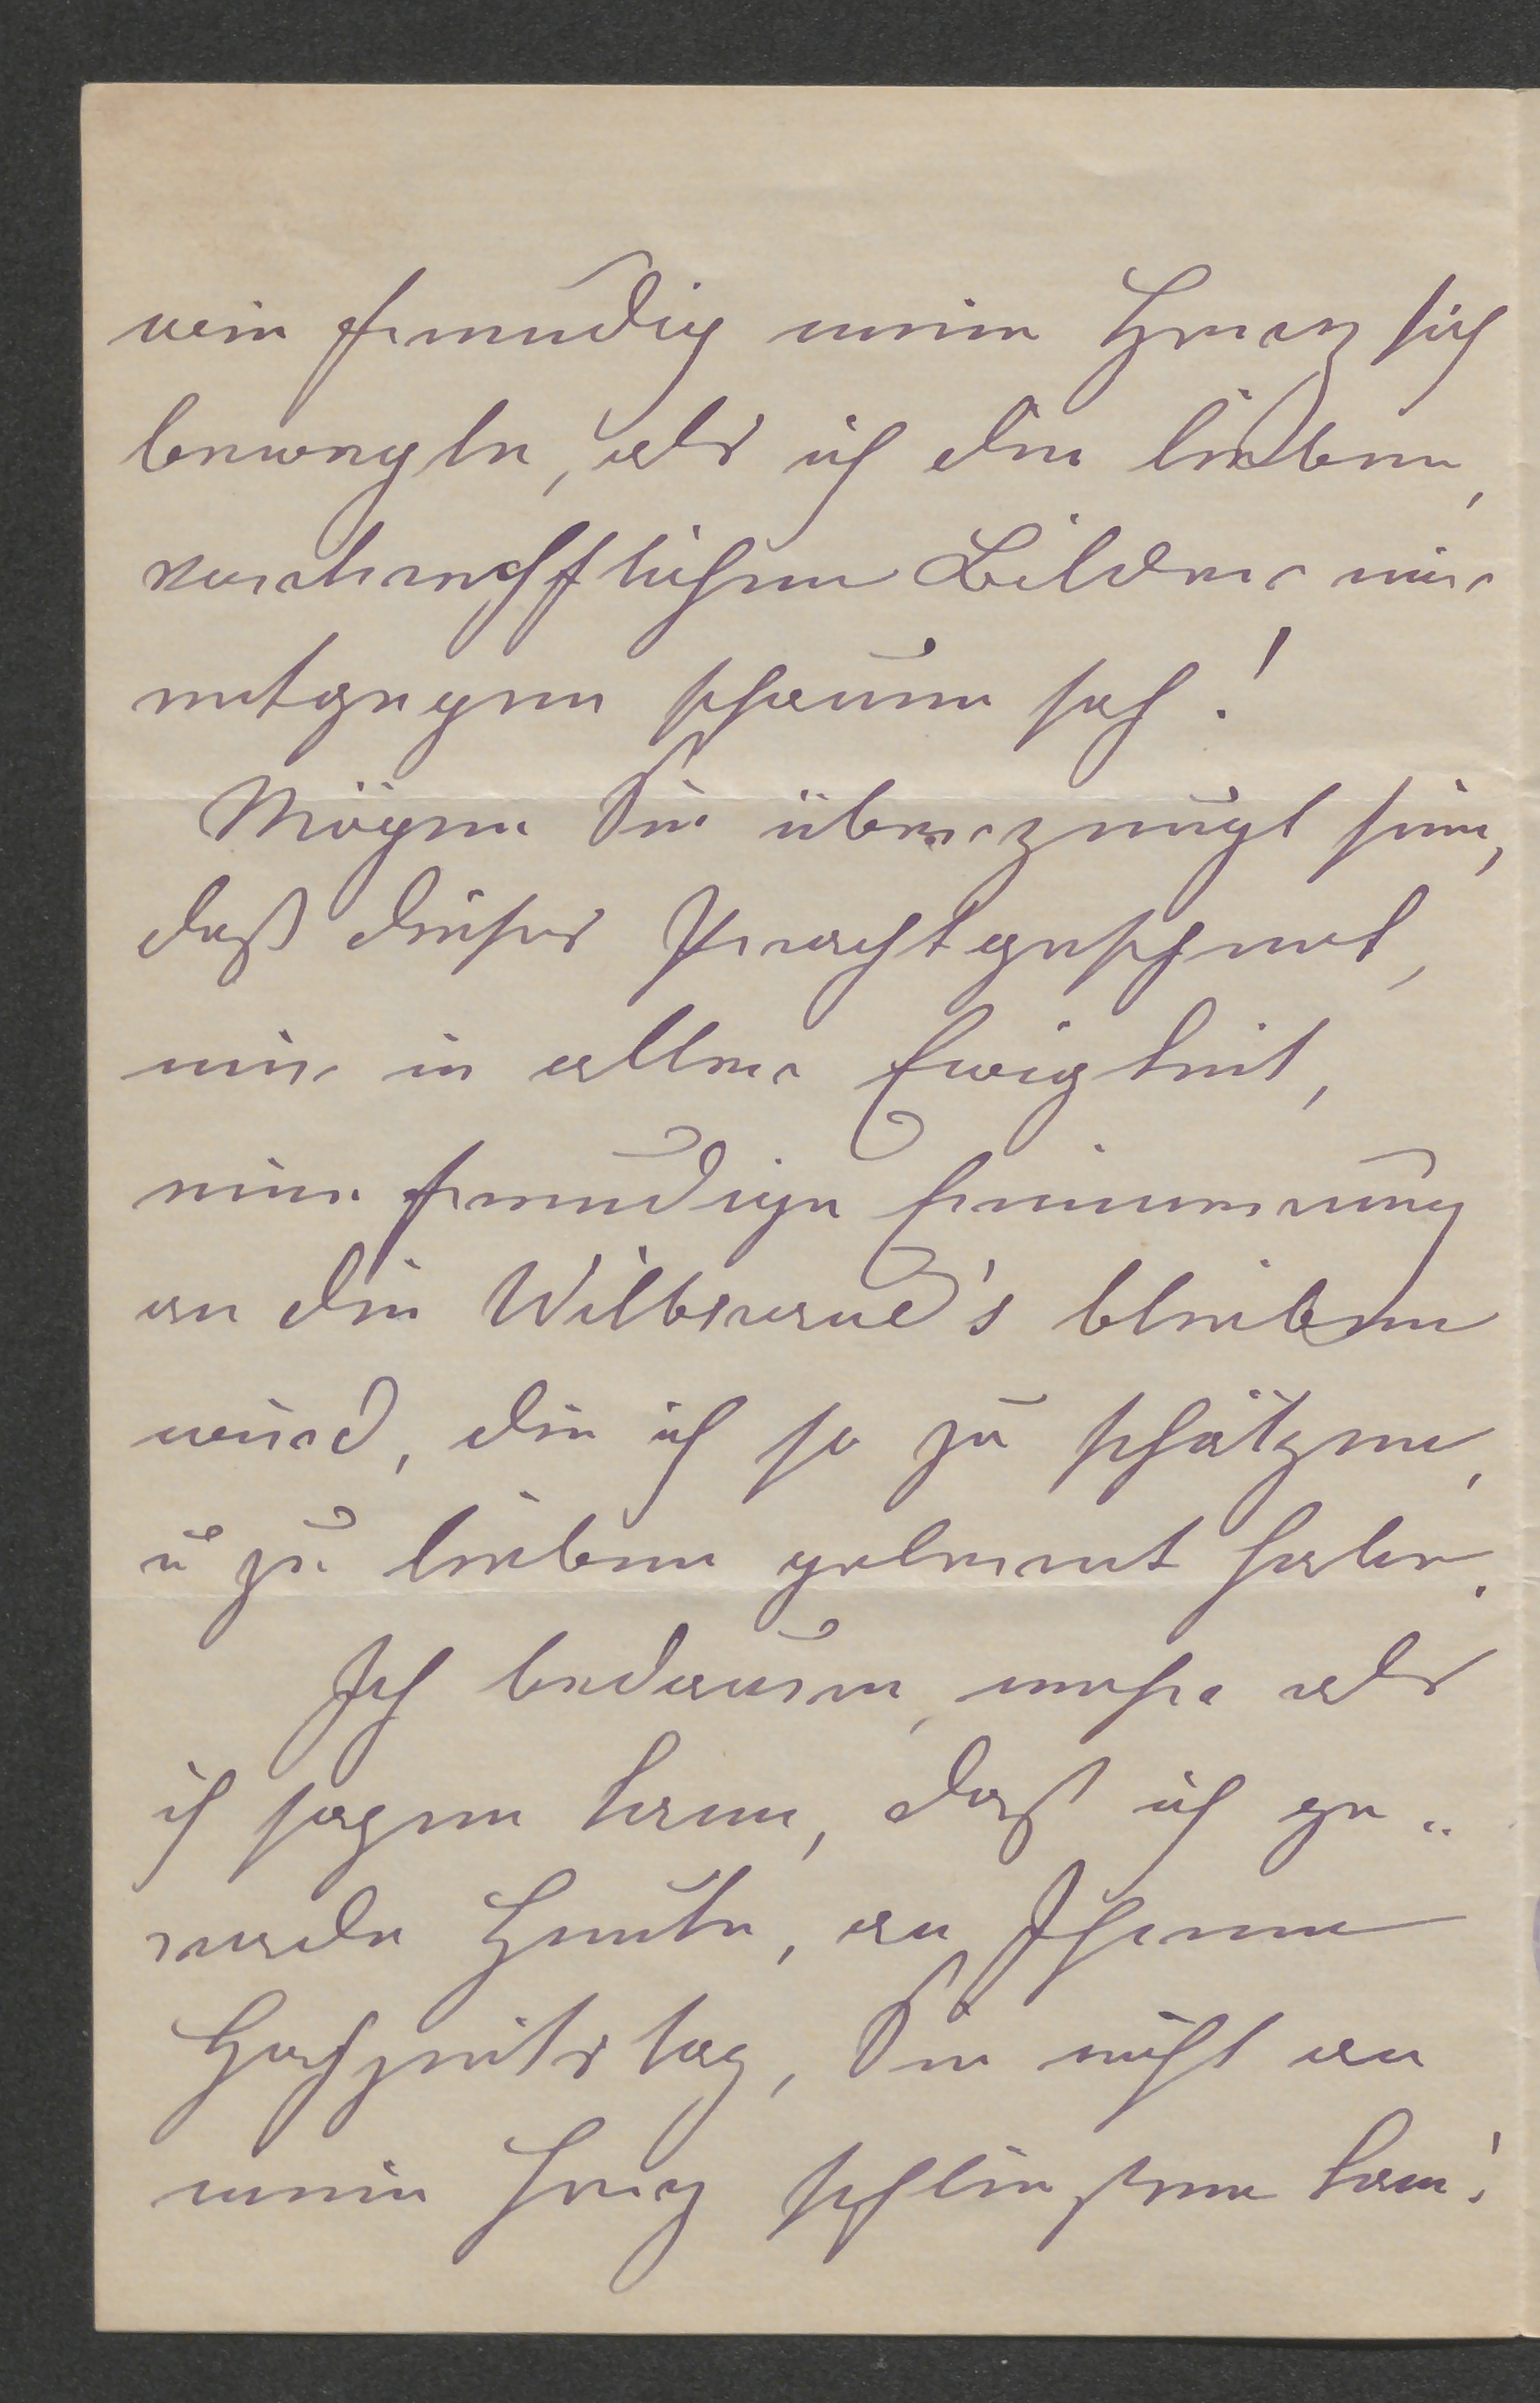 wie freudig mein Herz sich
bewegte, als ich die lieben,
vortrefflichen Bilder mir
entgegen schauen sah!
Mögen Sie überzeugt sein,
daß dieses Prachtgeschenk,
mir in aller Ewigkeit,
eine freudige Erinnerung
an die Wilbrand's bleiben
wird, die ich so zu schätzen,
u zu lieben gelernt habe.
Ich bedauere, mehr als
ich sagen kann, daß ich ge„
rade Heute, an Ihrem
Hochzeitstag, Sie nicht an
mein Herz schließen kann!